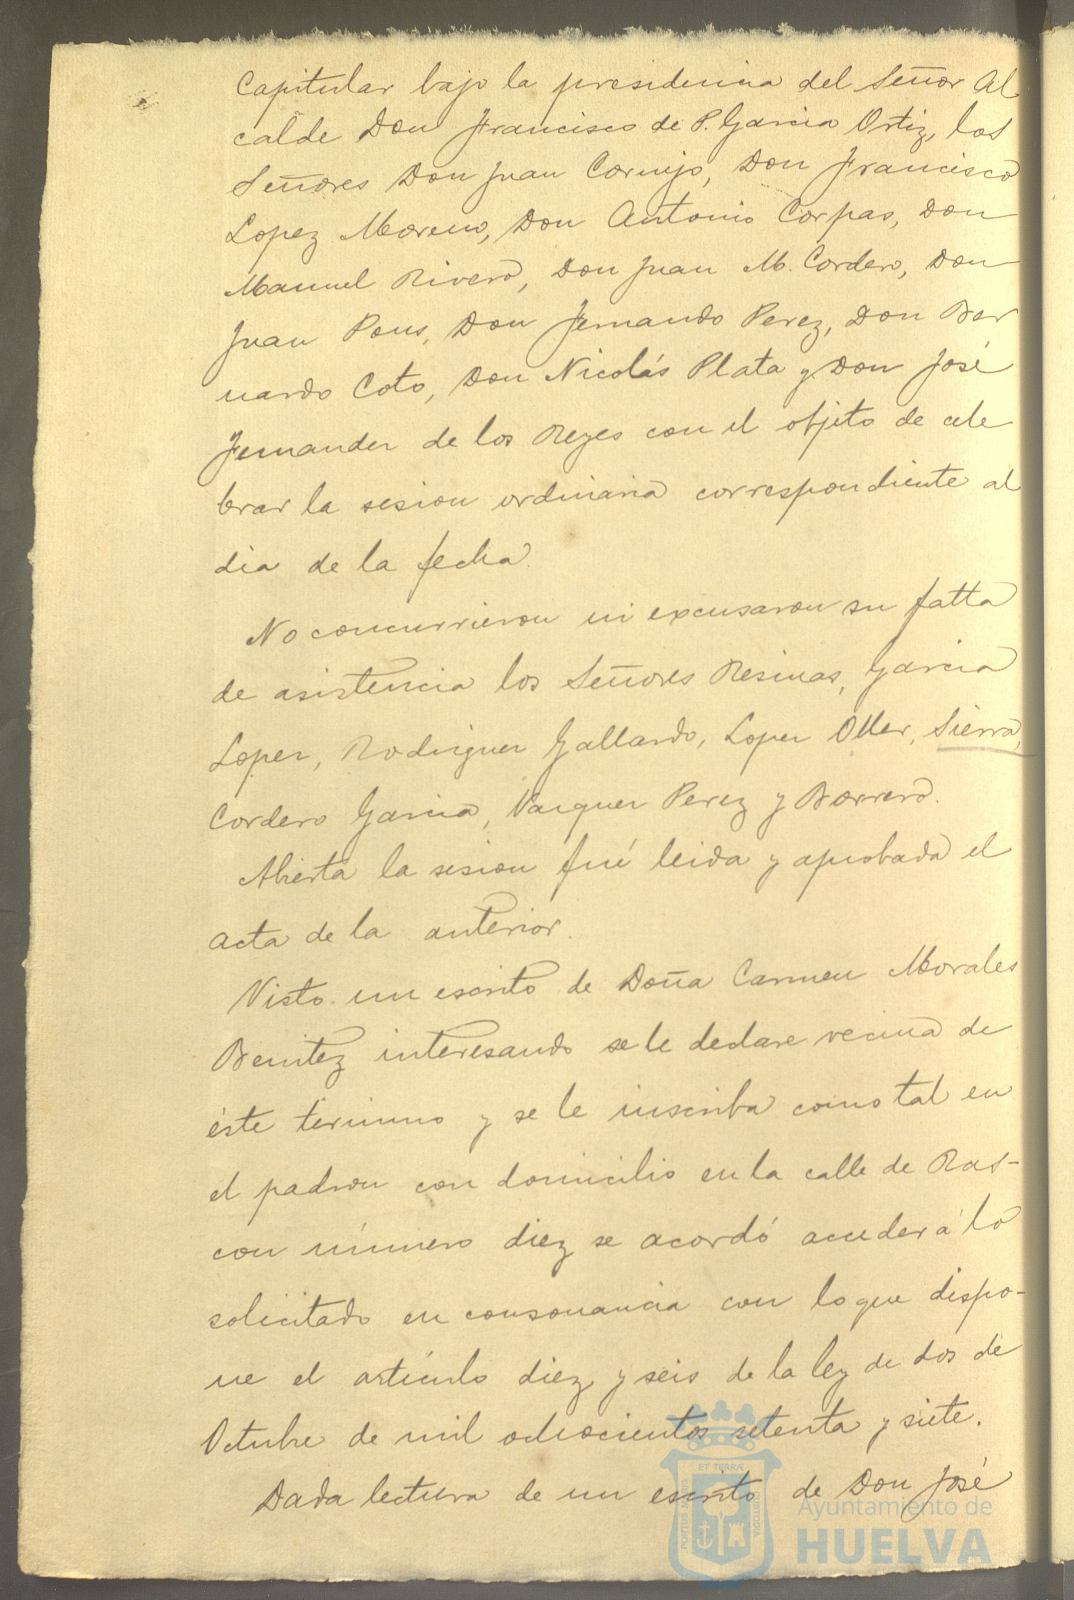 Capitular bajo la presidencia del Señor Al
calde Don Francisco de P. Garcia Ortiz, los
Señores Don Juan Cornejo, Don Francisco
Lopez Moreno, Don Antonio Corpas, Don
Manuel Rivero, Don Juan M. Cordero, Don
Juan Pons, Don Fernando Perez, Don Ber
nardo Coto, Don Nicolás Plata y Don José
Fernandez de los Reyes con el objeto de cele
brar la sesion ordinaria correspondiente al
dia de la fecha.
No concurrieron ni excusaron su falta
de asistencia los Señores Resinas, Garcia
Lopez, Rodriguez Gallardo, Lopez Oller, Sierra,
Cordero Garcia, Vazquez Perez y Borrero.
Abierta la sesion fué leida y aprobada el
acta de la anterior.
Visto un escrito de Doña Carmen Morales
Benitez interesando se le declare vecina de
éste término y se le inscriba como tal en
el padron con domicilio en la calle de Ras-
con número diez se acordó acceder á lo
solicitado en consonancia con lo que dispo-
ne el artículo diez y seis de la ley de dos de
Octubre de mil ochocientos setenta y siete.
Dada lectura de un escrito de Don José
ET TERRÆ
PORTUS MARIS
CUSTODIA
Ayuntamiento de
HUELVA